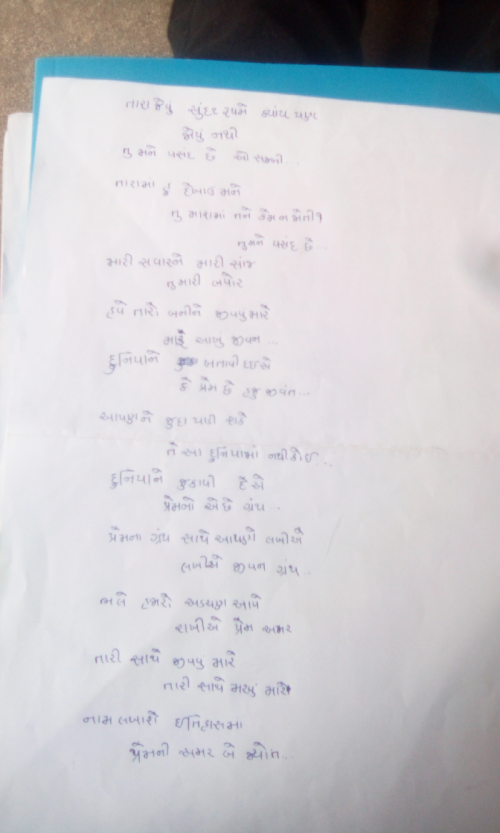 તારા જેવું સુંદર રૂપમે ક્યાંય પણ
જોયું નથી
તુ મને પસંદ છે ઓ
તારામા હું દેખાઉ મને
તુ મારામાં તને કેમ ન જોતી?
તુ મને પસંદ છે...
મારી સવારને મારી સાંજ
તુ મારી બપોર
હવે તારો બનીને જીવવુ મારે
મારે આખું જીવન...
દુનિયાને બતાવી દઈએ
કે પ્રેમ છે હજુ જીવંત...
આપણને જુદા પાડી શકે
તે આ દુનિયામાં નથી કોઈ...
દુનિયાને દેએ
પ્રેમનો એ છે ગ્રંથ..
પ્રેમના ગ્રંથ સાથે આપણે લખીએ
લખીએ જીવન ગ્રંથ..
ભલે હમરો અડચણ આપે
રાખીએ પ્રેમ અમર
તારી સાથે જીવવુ મારે
તારી સાથે મરવું મારે
નામ લખાશે ઇતિહાસમા
પ્રેમની અમર બે જ્યોત...